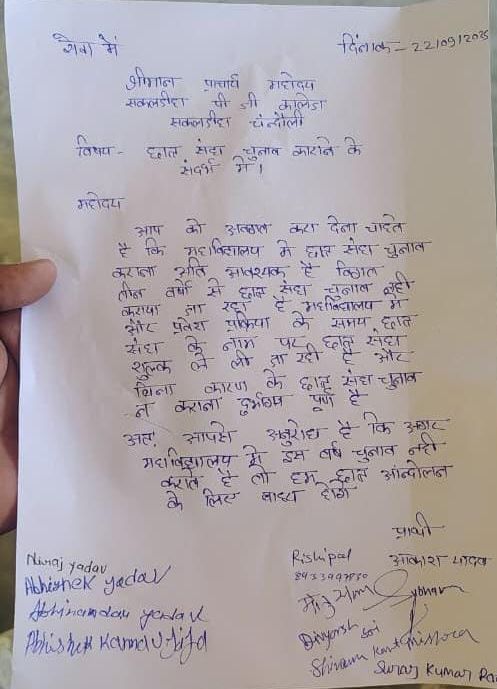 सेवा में
दिनांक - 22/09/2025
श्रीमान प्राचार्य महोदय
सकलडीहा पी जी कालेज
सकलडीहा चन्दौली
विषय - छात्र संघ चुनाव कराने के
संदर्भ में।
महोदय
आप को अवगत करा देना चाहते
है कि महाविद्यालय मे छात्र संघ चुनाव
कराना अति आवश्यक है विगत
तीन वर्षो से छात्र संघ चुनाव नही
कराया जा रहा है महाविद्यालय में
और प्रवेश प्रक्रिया के समय छात्र
संघ के नाम पर छात्र संघ
शुल्क ले ली जा रही है और
बिना कारण के छात्र संघ चुनाव
न कराना दुर्भाग्य पूर्ण है
अतः आपसे अनुरोध है कि अगर
महाविद्यालय में इस वर्ष चुनाव नही
कराते है तो हम छात्र आंन्दोलन
के लिए बाध्य होंगे
प्रार्थी
Niraj yadav
Rishipal
आकाश यादव
Abhishek yadav
Abhinandan yadav
Divyansh
Abhishek
Shivam Kant
Suraj Kumar